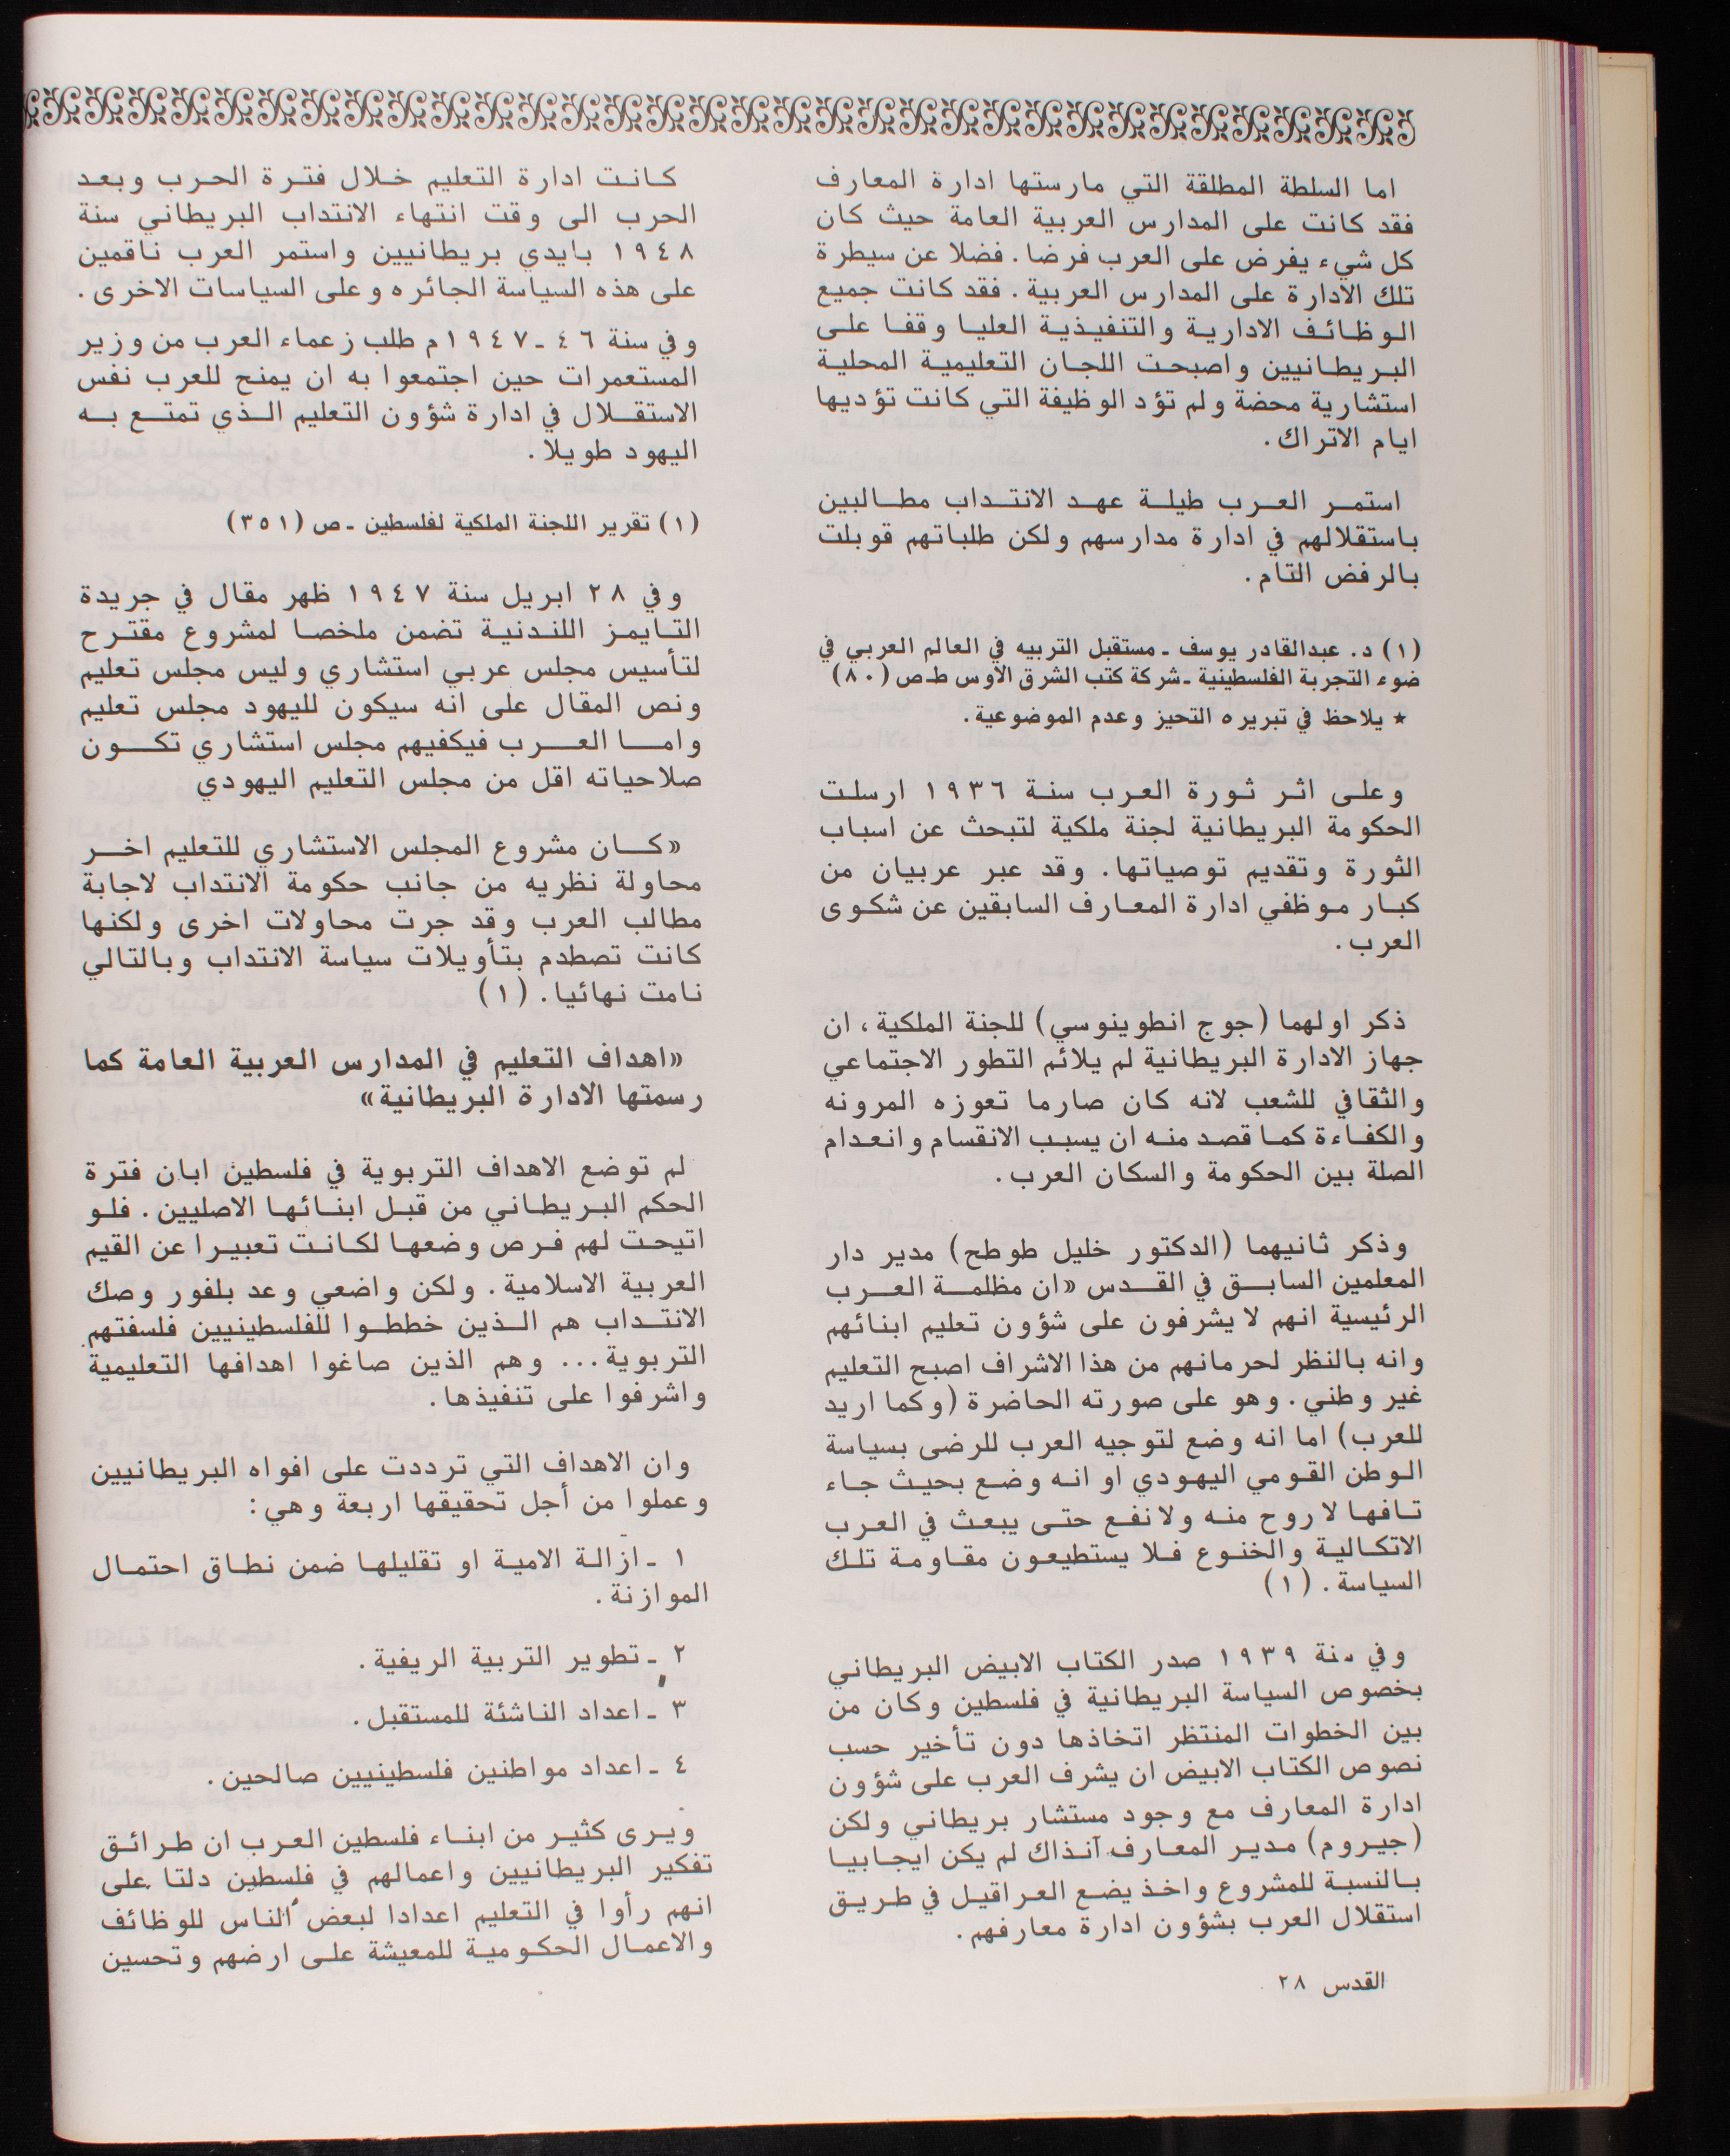 اما السلطة المطلقة التي مارستها ادارة المعارف
فقد كانت على المدارس العربية العامة حيث كان
كل شيء يفرض على العرب فرضا. فضلا عن سيطرة
تلك الادارة على المدارس العربية. فقد كانت جميع
الوظائف الادارية والتنفيذية العليا وقفا على
البريطانيين واصبحت اللجان التعليمية المحلية
استشارية محضة ولم تؤد الوظيفة التي كانت تؤديها
ايام الاتراك.
استمر العرب طيلة عهد الانتداب مطالبين
باستقلالهم في ادارة مدارسهم ولكن طلباتهم قوبلت
بالرفض التام.
(١) د. عبدالقادر يوسف ـ مستقبل التربيه في العالم العربي في
ضوء التجربة الفلسطينية ـ شركة كتب الشرق الاوس ط ـ ص (٨٠)
★ يلاحظ في تبريره التحيز وعدم الموضوعية.
وعلى اثر ثورة العرب سنة ١٩٣٦ ارسلت
الحكومة البريطانية لجنة ملكية لتبحث عن اسباب
الثورة وتقديم توصياتها. وقد عبر عربيان من
كبار موظفي ادارة المعارف السابقين عن شكوى
العرب.
ذكر اولهما (جوج انطوينوسي) للجنة الملكية، ان
جهاز الادارة البريطانية لم يلائم التطور الاجتماعي
والثقافي للشعب لانه كان صارما تعوزه المرونه
والكفاءة كما قصد منه ان يسبب الانقسام وانعدام
الصلة بين الحكومة والسكان العرب.
وذكر ثانيهما (الدكتور خليل طوطح) مدير دار
المعلمين السابق في القدس «ان مظلمة العرب
الرئيسية انهم لا يشرفون على شؤون تعليم ابنائهم
وانه بالنظر لحرمانهم من هذا الاشراف اصبح التعليم
غير وطني. وهو على صورته الحاضرة (وكما اريد
للعرب) اما انه وضع لتوجيه العرب للرضى بسياسة
الوطن القومي اليهودي او انه وضع بحيث جاء
تافها لا روح منه ولا نفع حتى يبعث في العرب
الاتكالية والخنوع فلا يستطيعون مقاومة تلك
السياسة. (١)
وفي سنة ١٩٣٩ صدر الكتاب الابيض البريطاني
بخصوص السياسة البريطانية في فلسطين وكان من
بين الخطوات المنتظر اتخاذها دون تأخير حسب
نصوص الكتاب الابيض ان يشرف العرب على شؤون
ادارة المعارف مع وجود مستشار بريطاني ولكن
(جيروم) مدير المعارف آنذاك لم يكن ايجابيا
بالنسبة للمشروع واخذ يضع العراقيل في طريق
استقلال العرب بشؤون ادارة معارفهم.
كانت ادارة التعليم خلال فترة الحرب وبعد
الحرب الى وقت انتهاء الانتداب البريطاني سنة
١٩٤٨ بايدي بريطانيين واستمر العرب ناقمين
على هذه السياسة الجائره وعلى السياسات الاخرى.
وفي سنة ٤٦ ـ ١٩٤٧م طلب زعماء العرب من وزير
المستعمرات حين اجتمعوا به ان يمنح للعرب نفس
الاستقلال في ادارة شؤون التعليم الذي تمتع به
اليهود طويلا.
(١) تقرير اللجنة الملكية لفلسطين ـ ص (٣٥١)
وفي ٢٨ ابريل سنة ١٩٤٧ ظهر مقال في جريدة
التايمز اللندنية تضمن ملخصا لمشروع مقترح
لتأسيس مجلس عربي استشاري وليس مجلس تعليم
ونص المقال على انه سيكون لليهود مجلس تعليم
واما العرب فيكفيهم مجلس استشاري تكون
صلاحياته اقل من مجلس التعليم اليهودي
«كان مشروع المجلس الاستشاري للتعليم اخر
محاولة نظريه من جانب حكومة الانتداب لاجابة
مطالب العرب وقد جرت محاولات اخرى ولكنها
كانت تصطدم بتأويلات سياسة الانتداب وبالتالي
نامت نهائيا. (١)
«اهداف التعليم في المدارس العربية العامة كما
رسمتها الادارة البريطانية»
لم توضع الاهداف التربوية في فلسطين ابان فترة
الحكم البريطاني من قبل ابنائها الاصليين. فلو
اتيحت لهم فرص وضعها لكانت تعبيرا عن القيم
العربية الاسلامية. ولكن واضعي وعد بلفور وصك
الانتداب هم الذين خططوا للفلسطينيين فلسفتهم
التربوية... وهم الذين صاغوا اهدافها التعليمية
واشرفوا على تنفيذها.
وان الاهداف التي ترددت على افواه البريطانيين
وعملوا من أجل تحقيقها اربعة وهي:
١ ـ ازالة الامية او تقليلها ضمن نطاق احتمال
الموازنة.
٢ ـ تطوير التربية الريفية.
٣ ـ اعداد الناشئة للمستقبل.
٤ ـ اعداد مواطنين فلسطينيين صالحين.
ويرى كثير من ابناء فلسطين العرب ان طرائق
تفكير البريطانيين واعمالهم في فلسطين دلتا على
انهم رأوا في التعليم اعدادا لبعض الناس للوظائف
والاعمال الحكومية للمعيشة على ارضهم وتحسين
القدس ٢٨